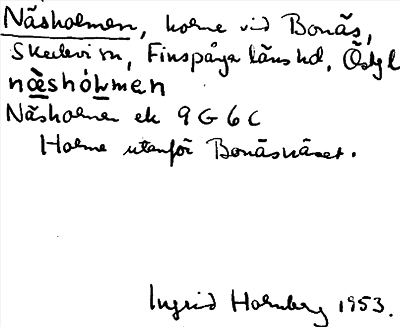 Näsholmen, holme vid Bonäs,
Skedevi sn, Finspånga läns hd, Östgl
næshólmen
Näsholmen ek 9G6c
Holme utanför Bonäsnäset.
Ingrid Holmberg 1953.